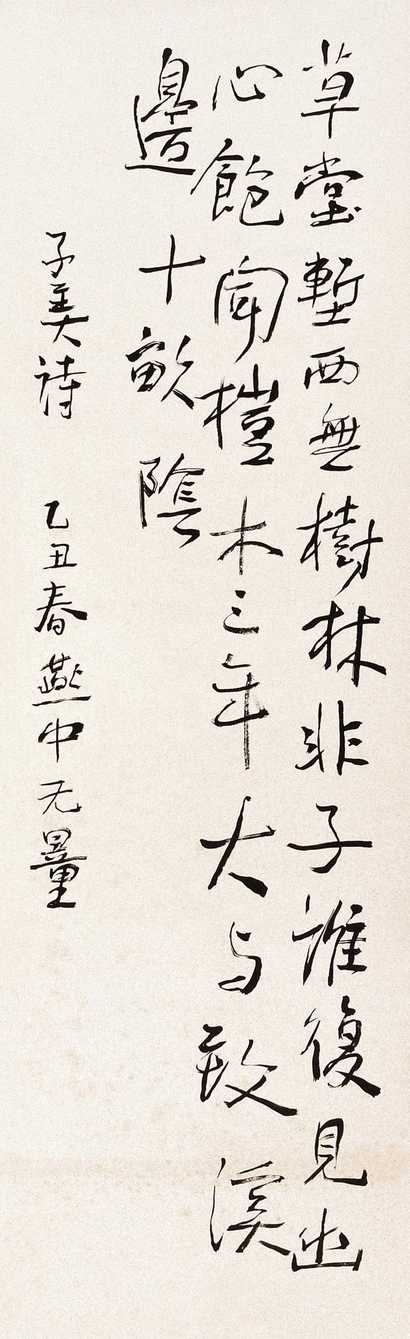 草堂塹西無樹林非子誰復見幽
心飽聞榿木三年大与致溪
邊十畝陰
子美詩 乙丑春燕中无量